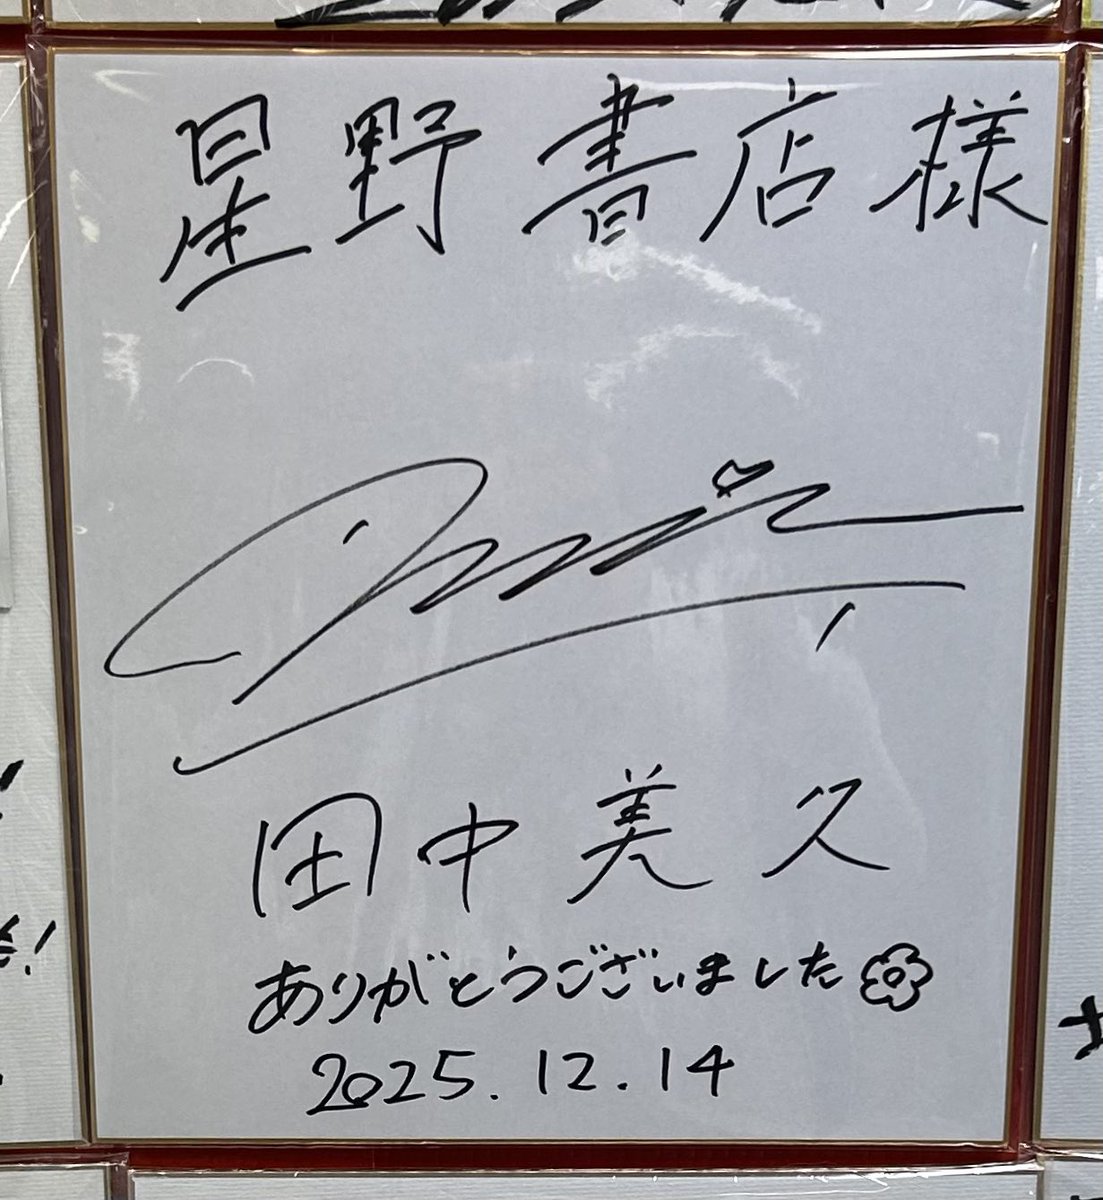 星野書店様
田中美久
ありがとうございました
2025.12.14